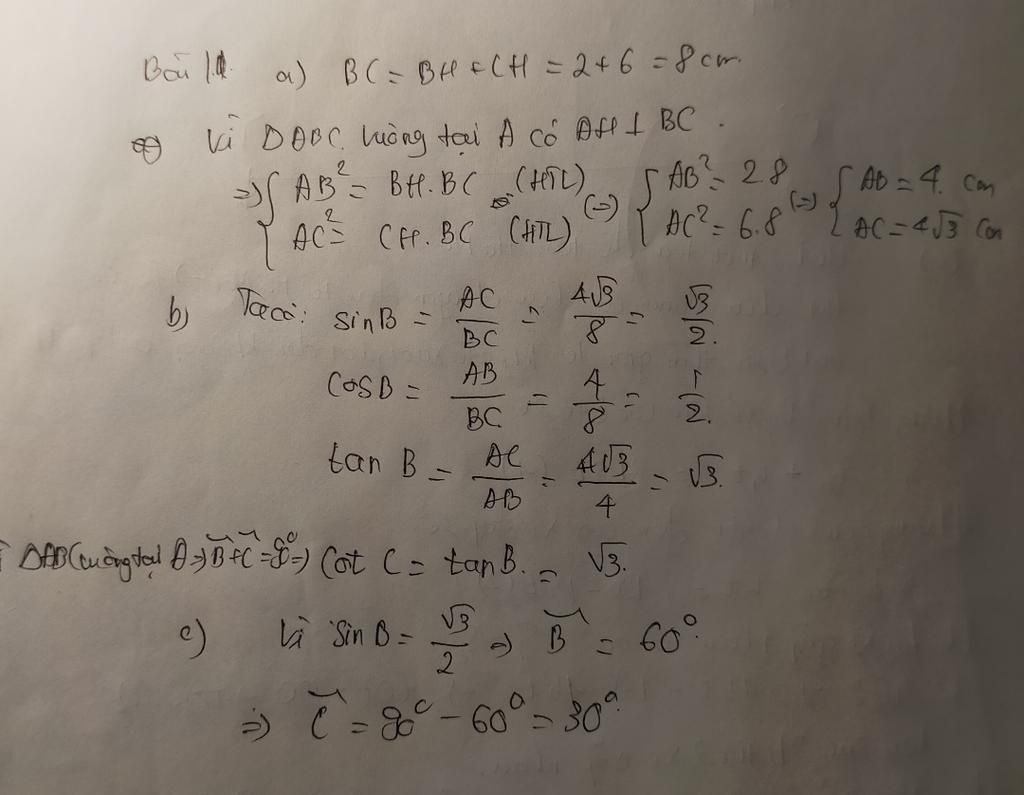 Bài 11. a) BC = BH + CH = 2 + 6 = 8 cm.
Vì ΔABC vuông tại A có AH ⊥ BC.
=> { AB² = BH.BC (HTL) (=) { AB² = 2.8 (=) { AB = 4 cm
AC² = CH.BC (HTL) AC² = 6.8 AC = 4√3 cm
b) Ta có: sin B = AC/BC = 4√3/8 = √3/2.
cos B = AB/BC = 4/8 = 1/2.
tan B = AC/AB = 4√3/4 = √3.
ΔABC vuông tại A => B̂ + Ĉ = 90° => Cot C = tan B. = √3.
c) Vì sin B = √3/2 => B̂ = 60°.
=> Ĉ = 90° - 60° = 30°.